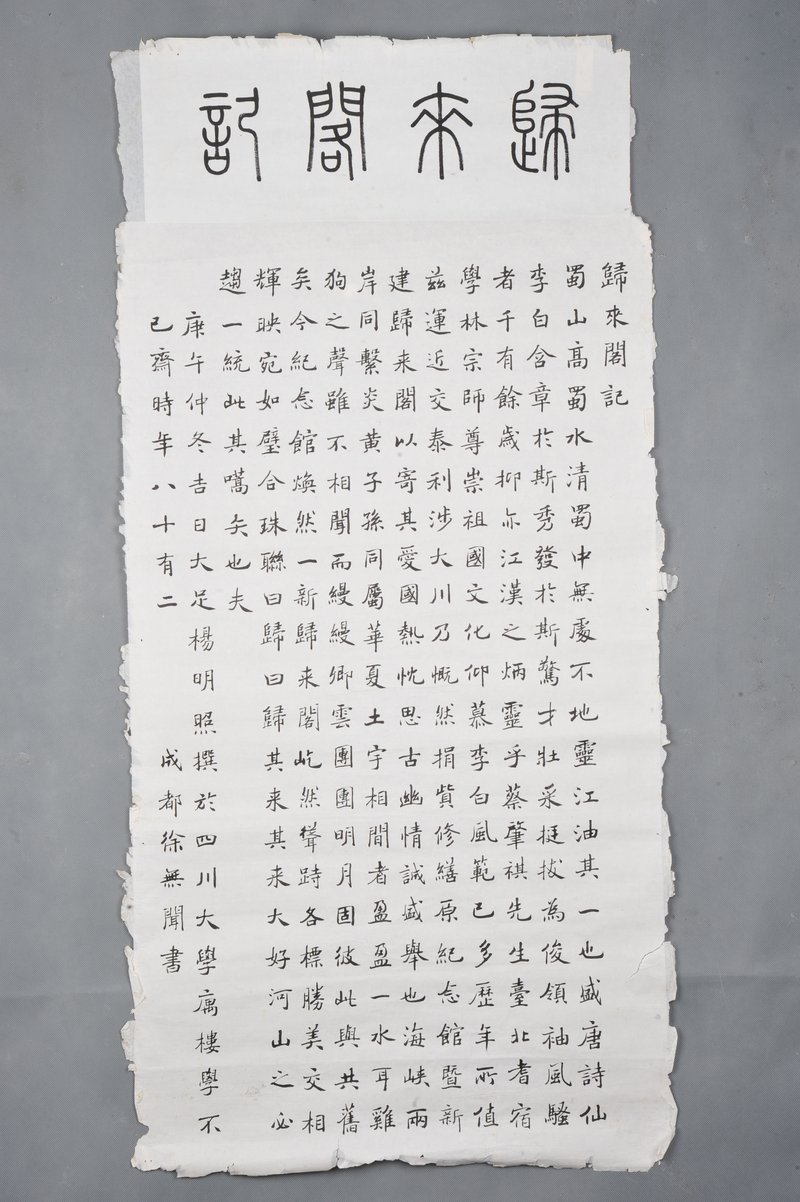 歸來閣記
歸來閣記
蜀山高蜀水清蜀中無處不地靈江油其一也盛唐詩仙
李白含章於斯秀發於斯驚才壯采挺拔為俊領袖風騷
者千有餘歲抑亦江漢之炳靈乎蔡肇祺先生臺北耆宿
學林宗師尊崇祖國文化仰慕李白風範已多歷年所值
茲運近交泰利涉大川乃慨然捐貲修繕原紀念館暨新
建歸来閣以寄其愛國熱忱思古幽情誠盛舉也海峽兩
岸同繫炎黃子孫同屬華夏土宇相間者盈盈一水耳雞
狗之聲雖不相聞而縵縵卿雲團團明月固彼此與共舊
矣今紀念館煥然一新歸来閣屹然聳跱各標勝美交相
輝映宛如璧合珠聯曰歸曰歸其来其来大好河山之必
趨一統此其嚆矢也夫
庚午仲冬吉日大足楊明照撰於四川大學寓樓學不
已齋時年八十有二
成都徐無聞書